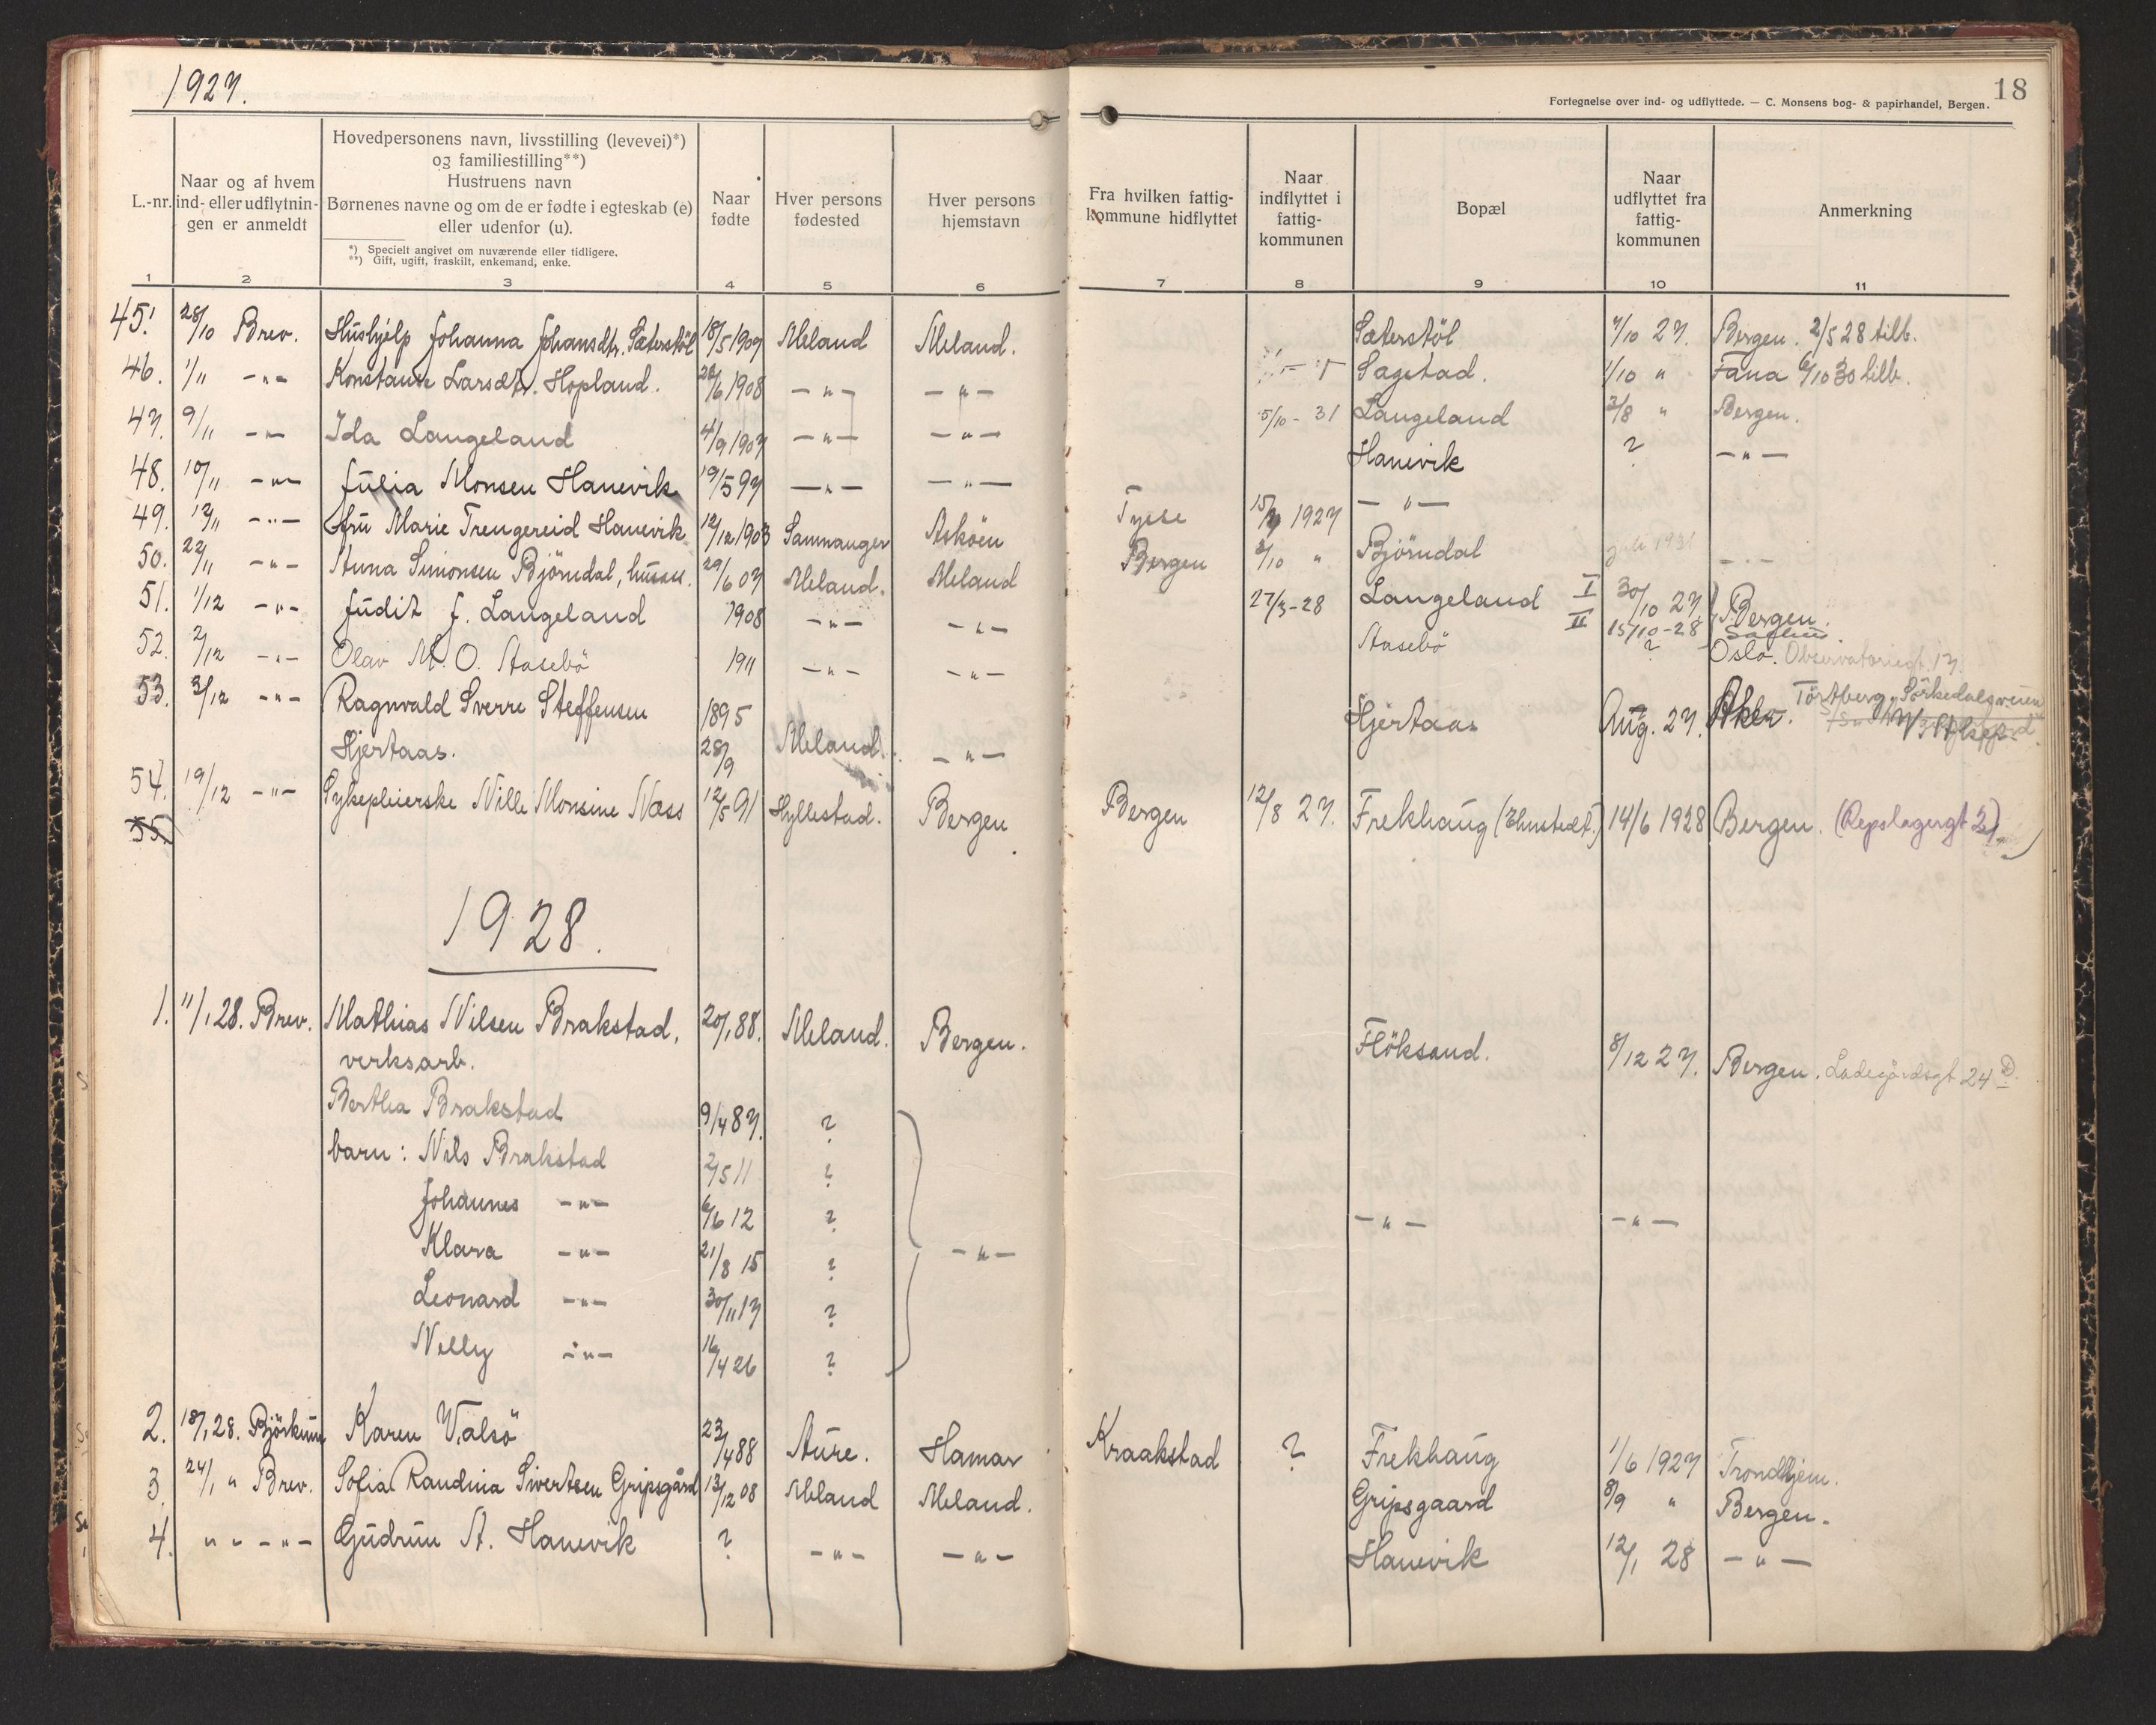 1927.
18
Fortegnelse over ind- og udflyttede. — C. Monsens bog- & papirhandel, Bergen.
L.-nr.
Naar og af hvem ind- eller udflytningen er anmeldt
Hovedpersonens navn, livsstilling (levevei)*)
og familiestilling**)
Hustruens navn
Børnenes navne og om de er fødte i egteskab (e)
eller udenfor (u).
*) Specielt angivet om nuværende eller tidligere.
**) Gift, ugift, fraskilt, enkemand, enke.
Naar fødte
Hver persons fødested
Hver persons hjemstavn
Fra hvilken fattigkommune hidflyttet
Naar indflyttet i fattigkommunen
Bopæl
Naar udflyttet fra fattigkommunen
Anmerkning
1 2 3 4 5 6 7 8 9 10 11
45. 28/10 Brev. Hushjelp Johanna Johansdtr. Sæterstöl 18/5 1907 Meland Meland. Sæterstöl 7/10 27. Bergen. 2/5 28 tilb.
46. 1/11 -"- Konstanse Larsdtr. Hopland. 28/6 1908 -"- -"- Sagstad. 1/10 " Fana 6/10 30 tilb.
47. 9/11 -"- Ida Langeland 4/9 1907 -"- -"- 5/10 - 31 Langeland 2/8 " Bergen.
48. 10/11 -"- Julia Monsen Hanevik 19/5 97 -"- -"- Hanevik ? -"-
49. 12/11 -"- Fru Marie Trengereid Hanevik 12/12 1903 Samnanger Asköen Tysse 15/ 1927 -"-
50. 22/11 -"- Anna Simonsen Björndal, husass. 29/6 07 Meland. Meland Bergen 8/10 " Björndal juli 1931 -"-
51. 1/12 -"- Judit J. Langeland 1908 -"- -"- 27/3-28 Langeland I 30/10 27. II 15/10-28 Bergen.
52. 2/12 -"- Olav M. O. Aasebö 1911 -"- -"- Aasebö ? Oslo. Observatoriegt. 17.
53. 3/12 -"- Ragnvald Sverre Steffensen 1895 Hjertaas Aug. 27. Aker. Törtberg, Sörkedalsveien
Hjertaas. 28/9 Meland. -"-
54. 19/12 -"- Sykepleierske Nille Monsine Næss 12/5 91 Hyllestad. Bergen Bergen 12/8 27. Frekhaug 14/6 1928 Bergen. (Repslagergt 21)
55.
1928.
1. 11/1 28. Brev. Mathias Nilsen Brakstad, 20/1 88. Meland. Bergen. Flöksand. 8/12 27. Bergen. Ladegårdsgt 24 D
verksarb.
Bertha Brakstad 9/4 87. ?
barn: Nils Brakstad 2/5 11 ?
Johannes -"- 6/6 12 ? -"- -"-
Klara -"- 21/8 15 ? -"-
Leonard -"- 30/11 17 ?
Nelly -"- 16/4 26 ?
2. 18/1 28. Karen Valsö 23/4 88 Aure. Hamar Kraakstad ? Frekhaug 1/6 1927 Trondhjem.
3. 24/1 " Brev. Sofia Randina Sivertsen Gripsgård 13/12 08 Meland Meland. Gripsgaard 8/9 " Bergen.
4. " " -"- Gudrun A. Hanevik ? -"- -"- Hanevik 12/1 28 -"-